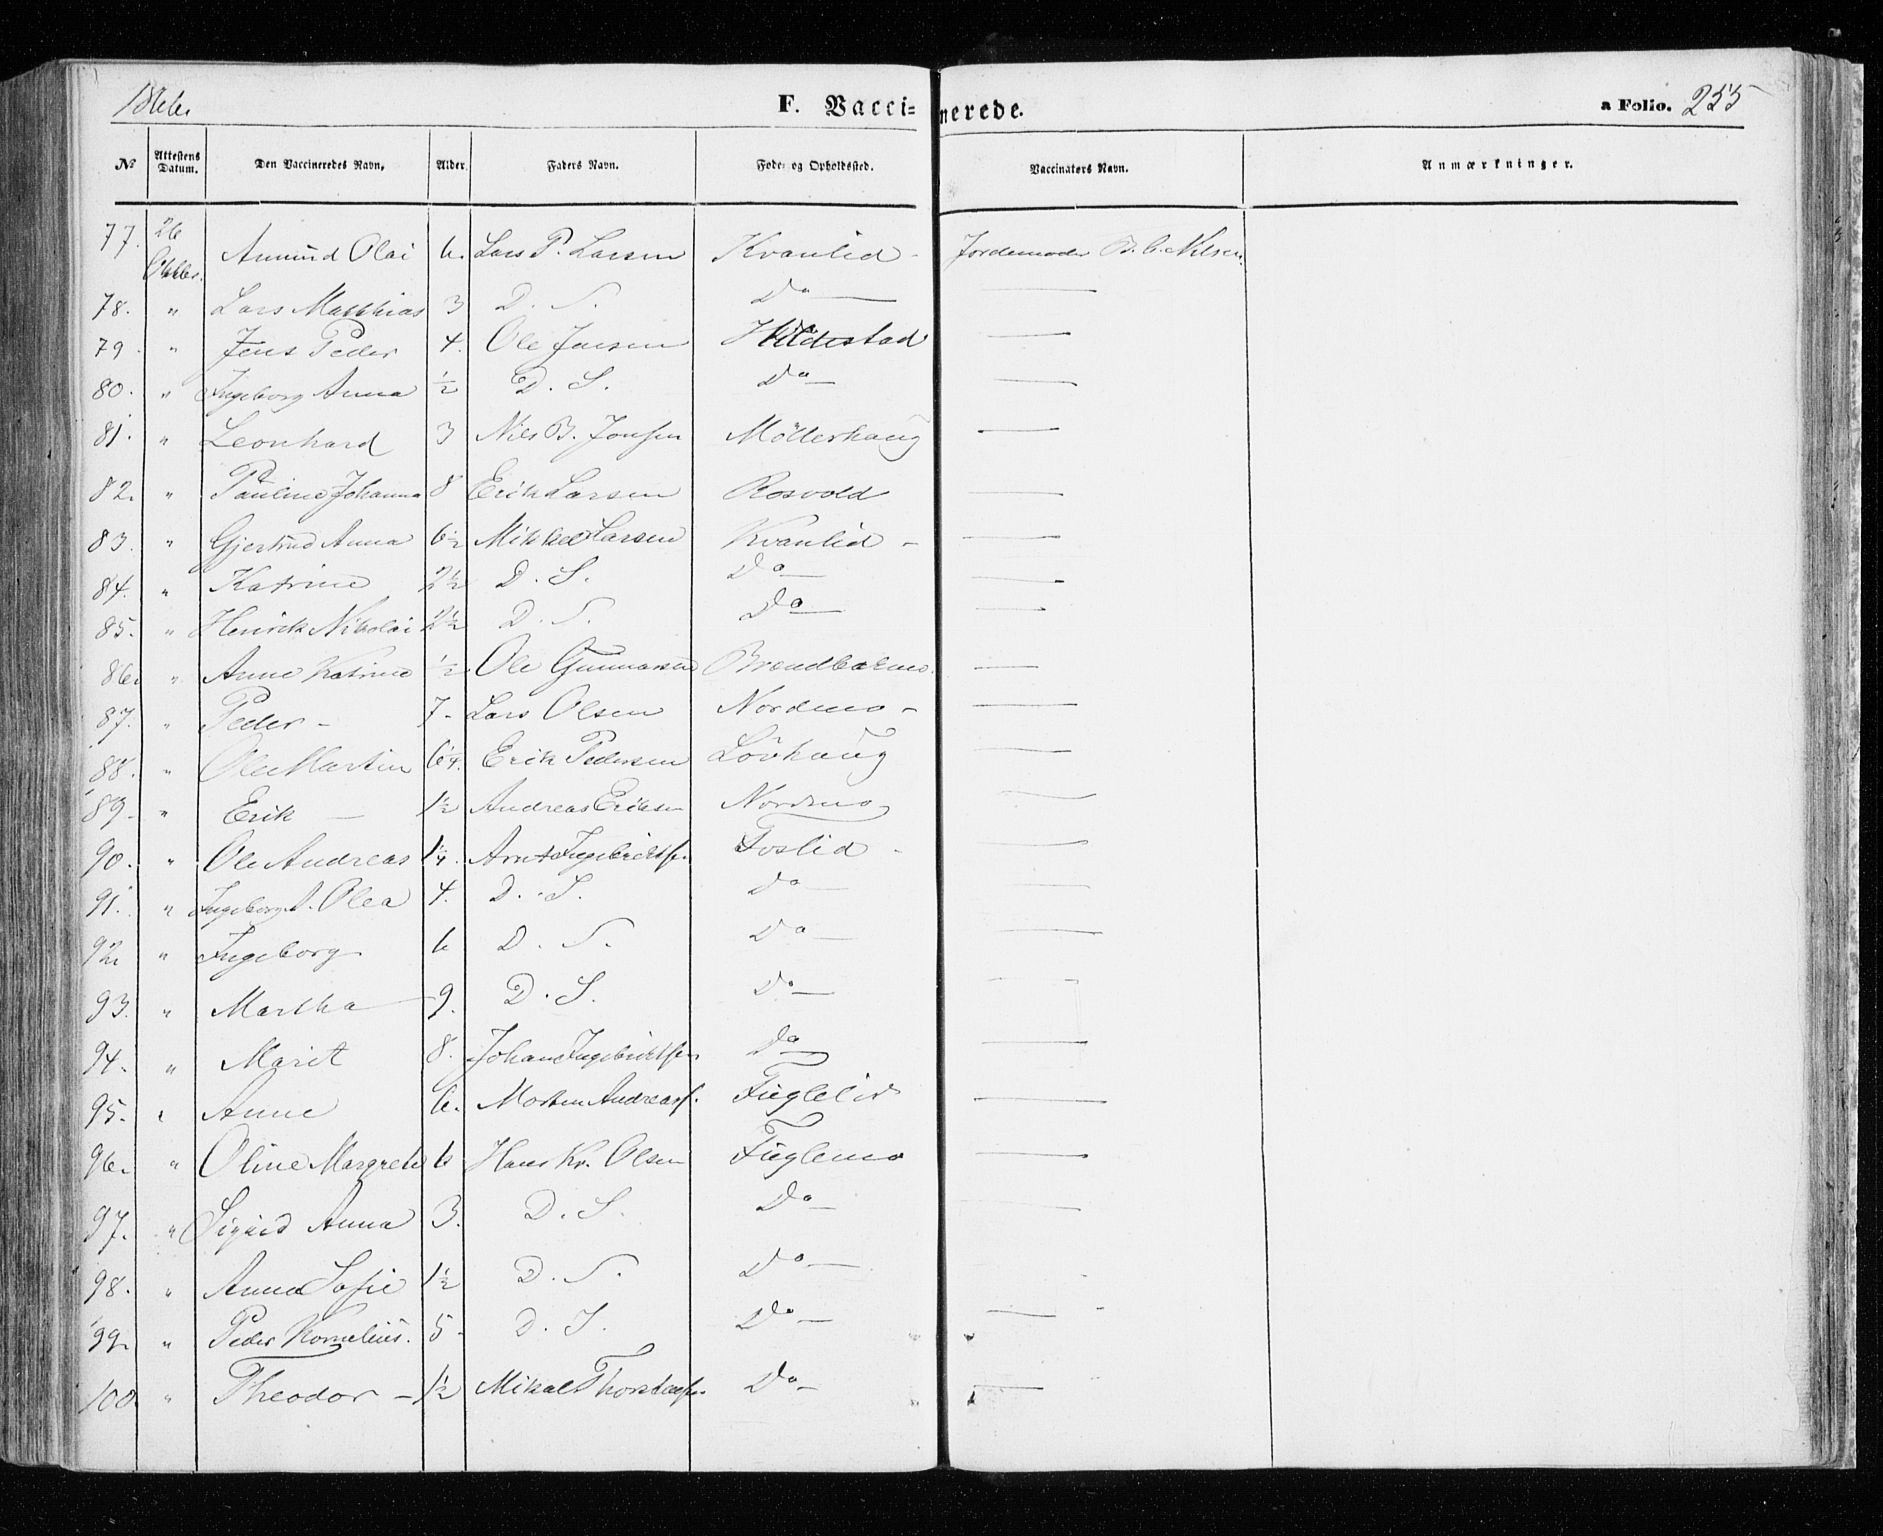 F. Vaccinerede.
a Folio. 255
№ Attestens Datum. Den Vaccineredes Navn. Alder. Faders Navn. Føde- og Opholdssted. Vaccinators Navn. Anmærkninger.
77. 26 Oktbr. Amund Olai 6. Lars P. Larsen Kvanlid - Jordemoder B. C. Nilsen.
78. " Lars Matthias 3 D. S. Do —
79. " Jens Peder 4. Ole Jensen —
80. " Ingeborg Anna ½ D. S. Do —
81. " Leonhard 3 Nils B. Jonsen Möllerhaug —
82. " Pauline Johanna 8 Erik Larsen Rosvold —
83. " Gjertrud Anna 6½ Mikkel Larsen Kvanlid - —
84. " Katrine 2½ D. S. Do —
85. " Henrik Nikolai 2½ D. S. Do —
86. " Anne Katrine ½ Ole Gunnarsen —
87. " Peder - 7. Lars Olsen Nordmo - —
88. " Ole Martin 6¼. Erik Pedersen Lövhaug —
89. " Erik — 1½ Andreas Eriksen Nordmo —
90. " Ole Andreas 1¼. Arnt Ingebrigtsn Foslid - —
91. " Ingeborg A. Olea 4. D. S. Do —
92. " Ingeborg 6 D. S. Do —
93. " Martha 9. D. S. Do —
94. " Marit 8. Johan Ingebrigtsn Do —
95. " Anne 6. Morten Andreass. Fuglelid —
96. " Oline Margrete 6 Hans Kr. Olsen Fuglemo —
97. " Sigrid Anna 3. D. S. Do —
98. " Anna Sofie 1½ D. S. Do —
99. " Peder Kornelius. 5. D. S. Do —
100. " Theodor — 1½ Mikal Thorstensn Do —